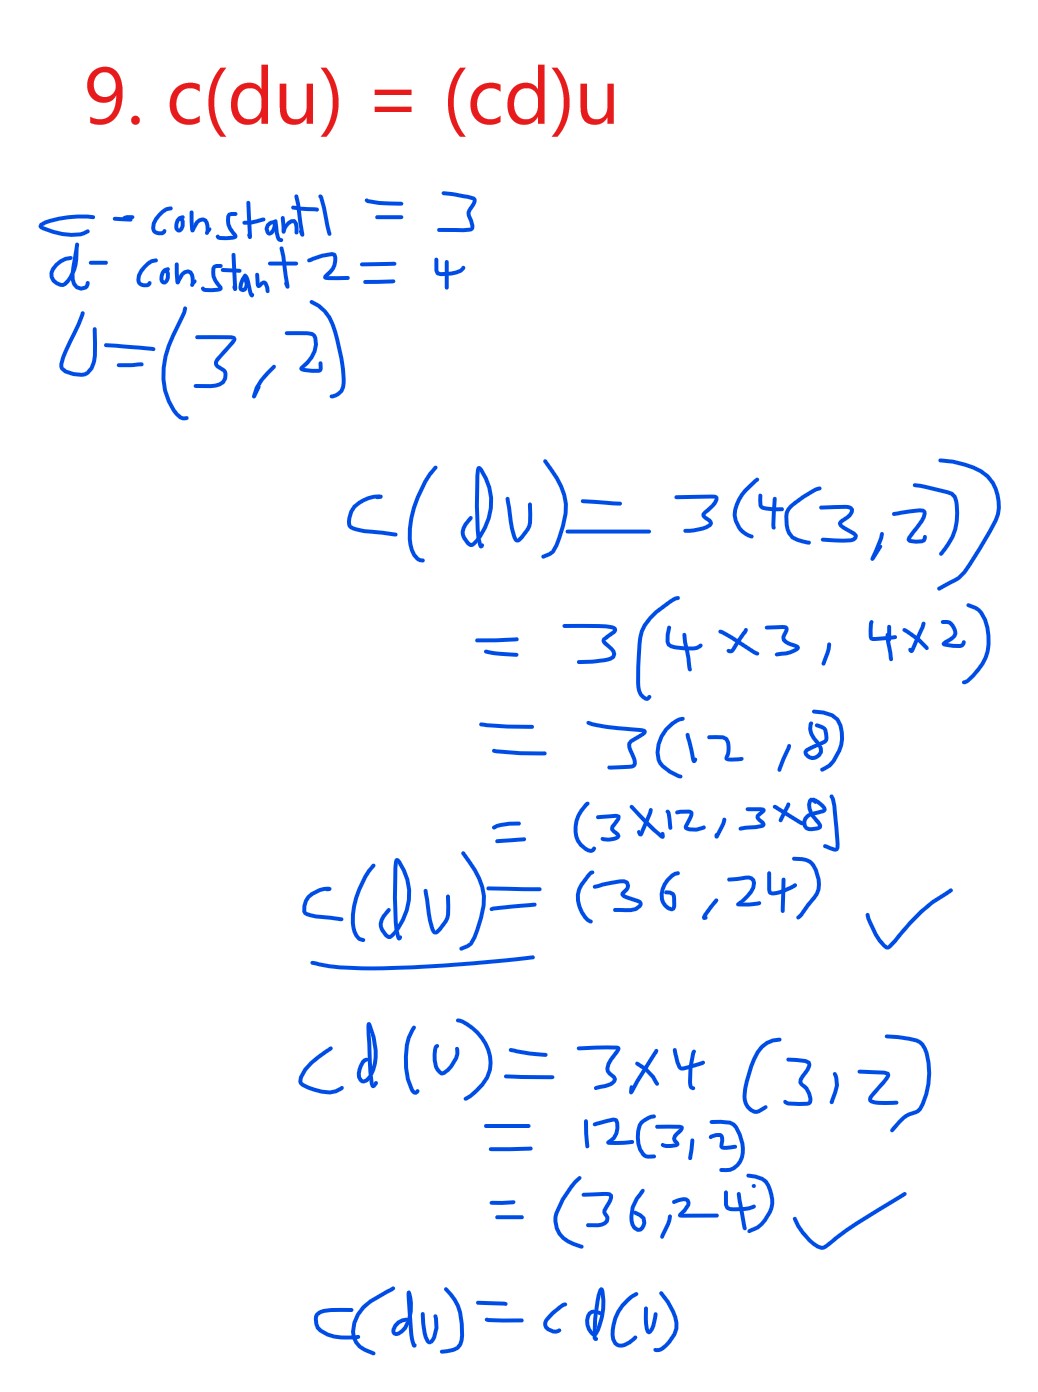 9. c(du) = (cd)u
c - constant1 = 3
d - constant 2 = 4
U = (3, 2)
c(du) = 3(4(3,2))
= 3(4×3, 4×2)
= 3(12, 8)
= (3×12, 3×8)
c(du) = (36, 24) ✓
cd(u) = 3×4 (3, 2)
= 12(3, 2)
= (36, 24) ✓
c(du) = cd(u)